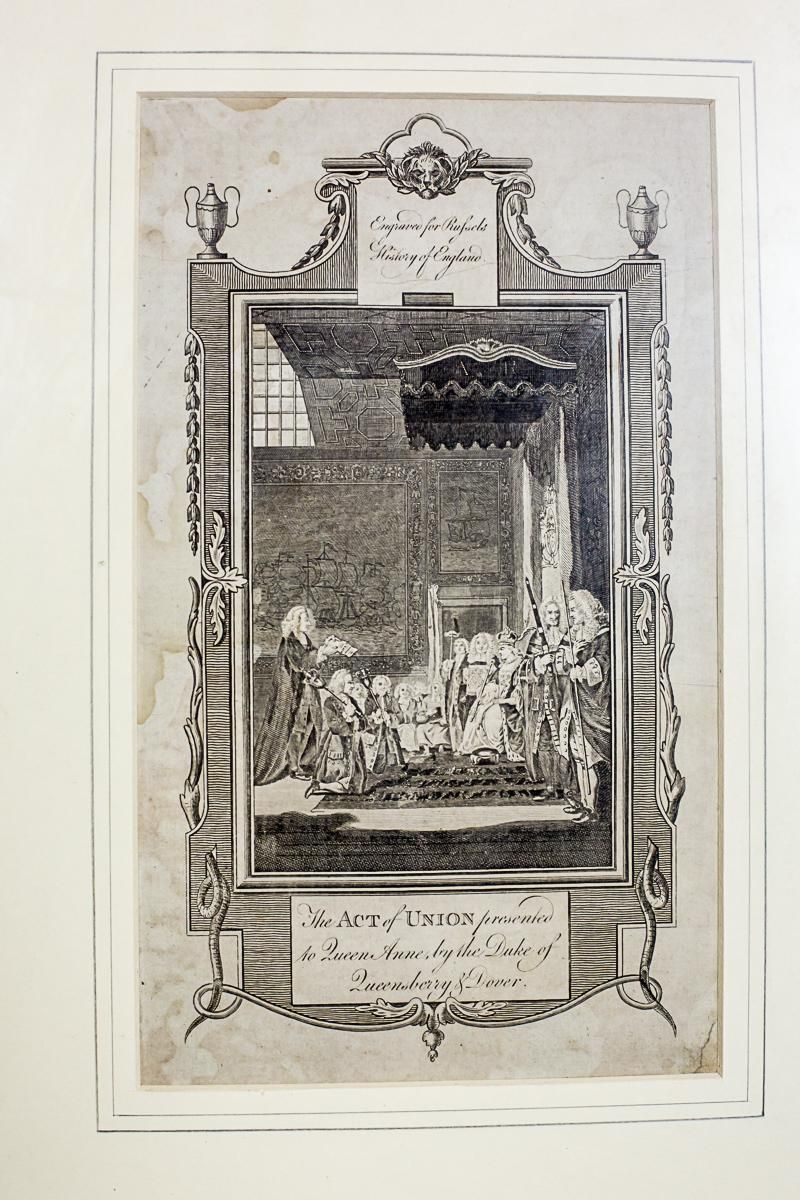 Engraved for Russels
History of England
A R
The ACT of UNION presented
to Queen Anne, by the Duke of
Queensberry & Dover.